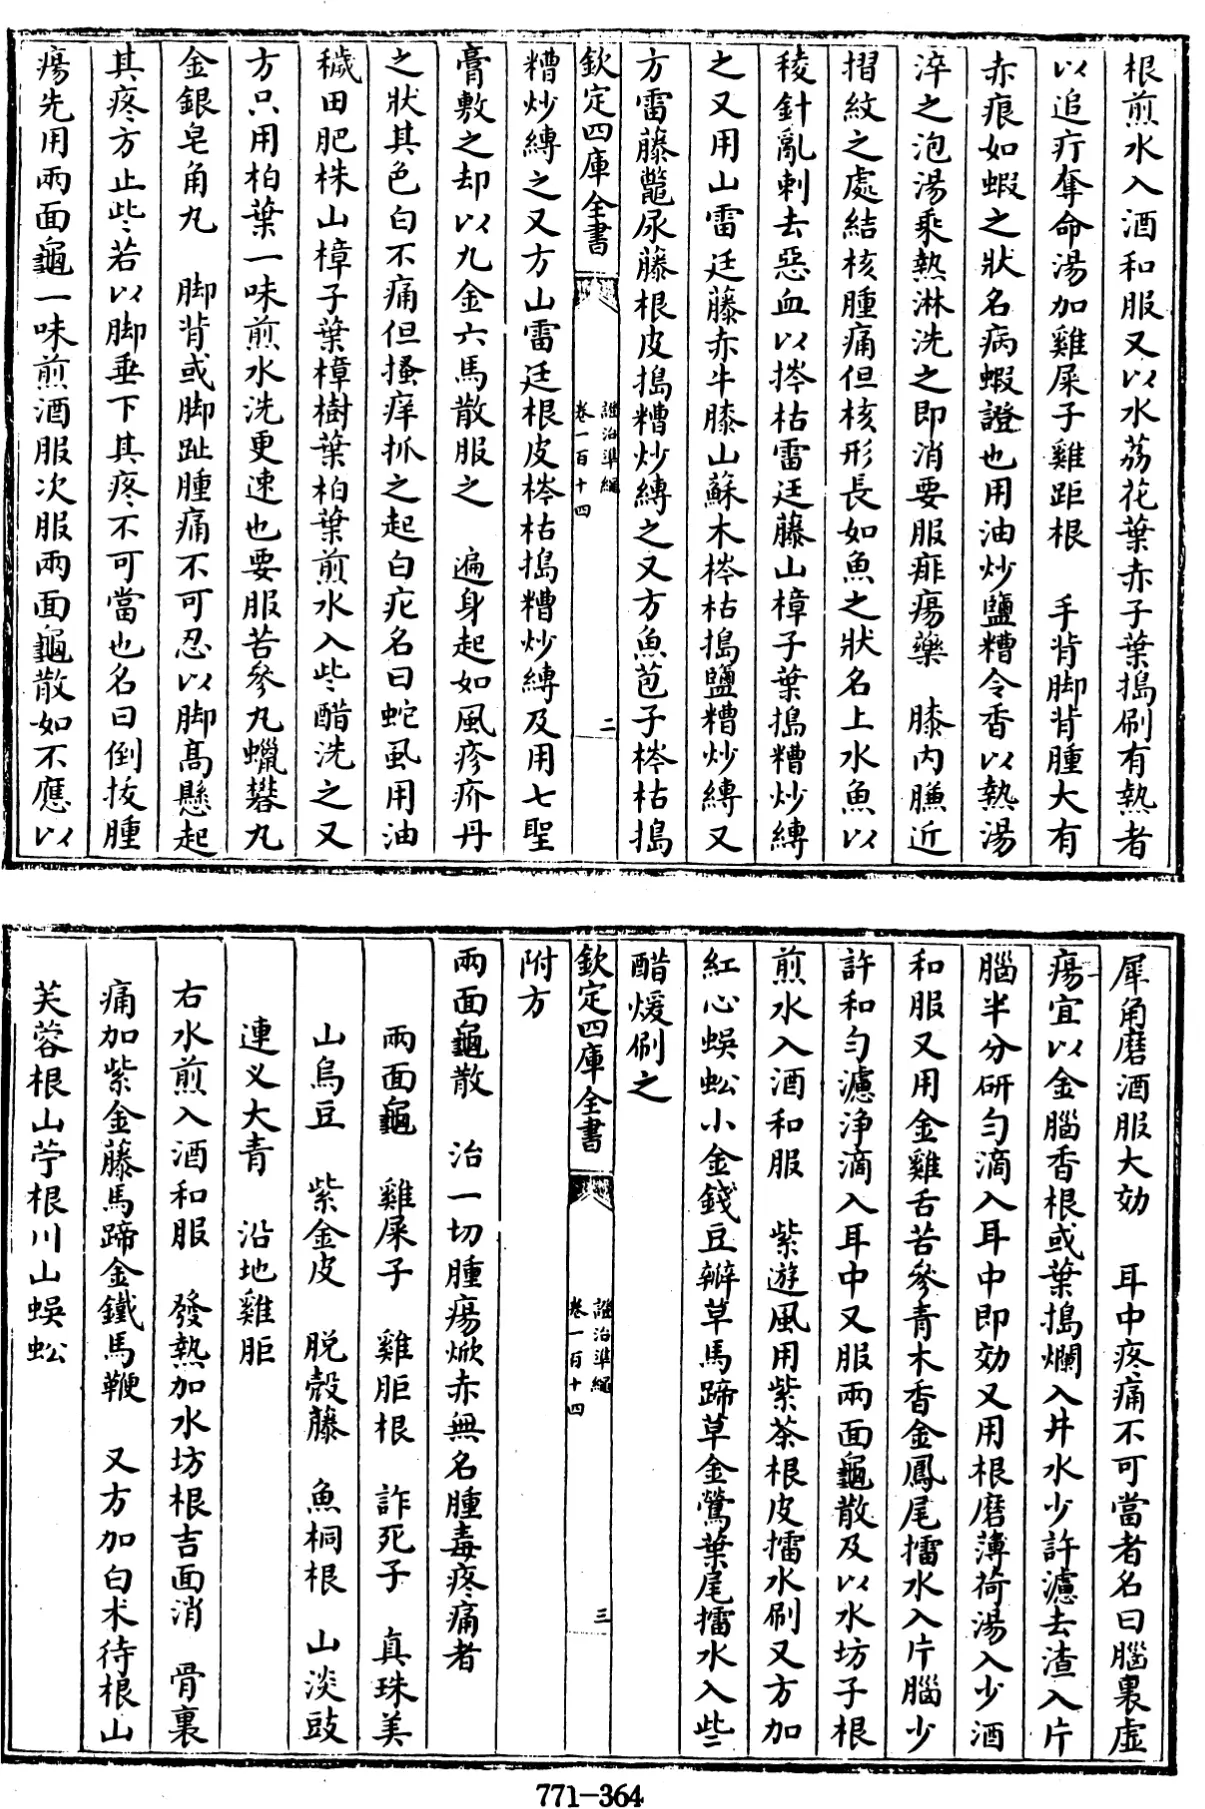 根煎水入酒和服又以水荔花葉赤子葉搗刷有熱者
以追疔奪命湯加雞屎子雞距根　手背脚背腫大有
赤痕如蝦之狀名病蝦證也用油炒鹽糟令香以熱湯
淬之泡湯乘熱淋洗之即消要服痱瘍藥　膝内臁近
摺紋之處結核腫痛但核形長如魚之狀名上水魚以
稜針亂刺去惡血以搽枯雷廷藤山樟子葉搗糟炒縛
之又用山雷廷藤赤牛膝山蘇木桳枯搗鹽糟炒縛又
方雷藤鼈尿藤根皮搗糟炒縛之又方魚苞子桳枯搗
欽定四庫全書
證治準繩
卷一百十四
二
糟炒縛之又方山雷廷根皮桳枯搗糟炒縛及用七聖
膏敷之却以九金六馬散服之　遍身起如風疹疥丹
之狀其色白不痛但搔痒抓之起白疕名曰蛇虱用油
穢田肥株山樟子葉樟樹葉柏葉煎水入些醋洗之又
方只用柏葉一味煎水洗更速也要服苦參丸蠟礬丸
金銀皂角丸　脚背或脚趾腫痛不可忍以脚高懸起
其疼方止些若以脚垂下其疼不可當也名曰倒拔腫
瘍先用兩面龜一味煎酒服次服兩面龜散如不應以
犀角磨酒服大効　耳中疼痛不可當者名曰腦裏虛
瘍宜以金腦香根或葉搗爛入井水少許濾去渣入片
腦半分研勻滴入耳中即効又用根磨薄荷湯入少酒
和服又用金雞舌苦參青木香金鳳尾擂水入片腦少
許和勻濾淨滴入耳中又服兩面龜散及以水坊子根
煎水入酒和服　紫遊風用紫茶根皮擂水刷又方加
紅心蜈蚣小金錢豆瓣草馬蹄草金鶯葉尾擂水入些
醋煖刷之
欽定四庫全書
證治準繩
卷一百十四
三
附方
兩面龜散　治一切腫瘍焮赤無名腫毒疼痛者
兩面龜　雞屎子　雞距根　詐死子　真珠美
山烏豆　紫金皮　脱殼藤　魚桐根　山淡豉
連义大青　沿地雞距
右水煎入酒和服　發熱加水坊根吉面消　骨裏
痛加紫金藤馬蹄金鐵馬鞭　又方加白术待根山
芙蓉根山苧根川山蜈蚣
771-364